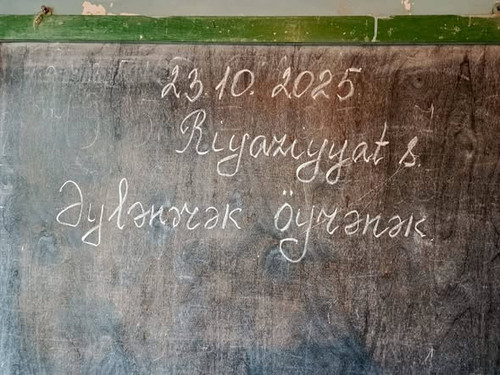 23.10.2025
Riyaziyyat s.
Əylənərək öyrənək.